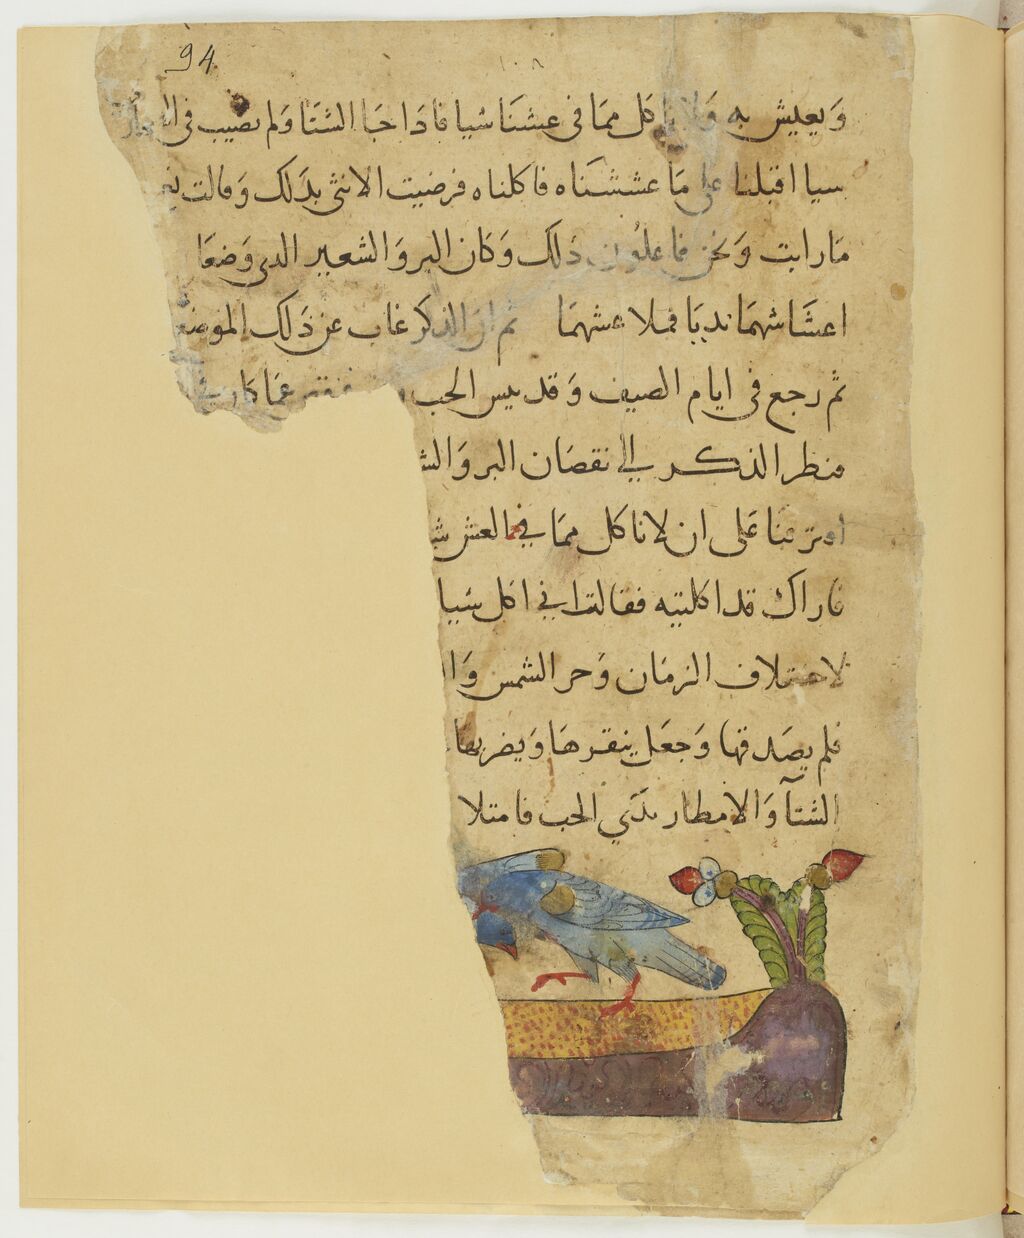 94
١٠٨
وَيعيش به وَلا ناكل ممَا فى عشنَا شيا فاذَا جَا الشتَا وَلم نصيب فى
سيا اقبلنا على مَا عششَناه فاكلناه فرضيت الانثى بذَلك وَقالت
مَا رايت وَنحن فاعلون ذلك وَكان البر وَالشعير الذى وَضعَا
اعشاشهمَا نديّا فملا عشهمَا ثم ان الذكر غاب عن ذَلك الموضع
ثم رجع فى ايام الصيف وَقد يبس الحب عمَا كان
فنظر الذكر الى نقصَان البر وَ
عَلى ان لا ناكل ممَا فى العش
فاراك قد اكلتيه فقالت انى اكل شيا
لاختلاف الزمَان وَحر الشمس وَ
فلم يصَدقها وَجعَل ينقرهَا وَيضربهَا
الشتآ وَالامطار ندَى الحب فامتلا